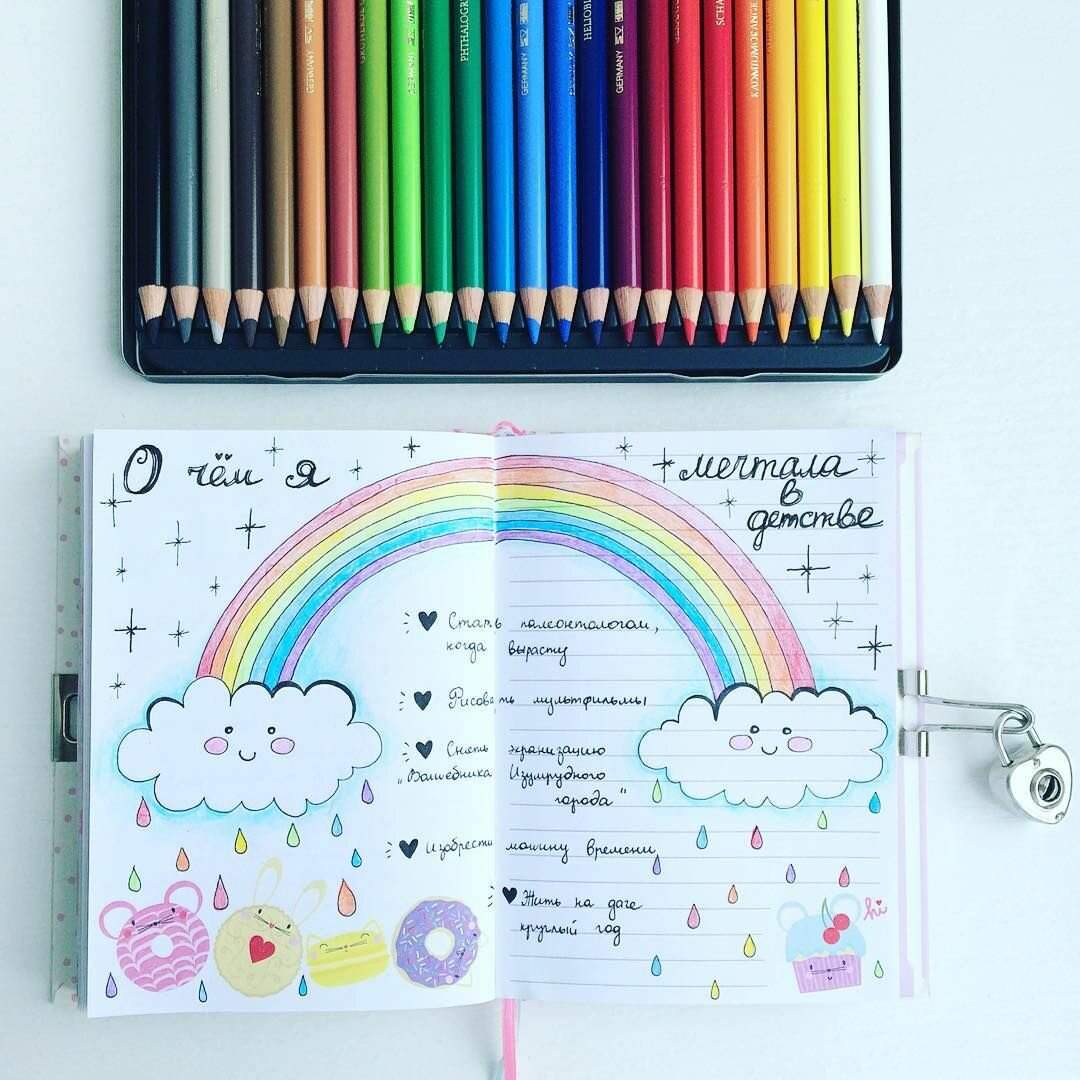 GERMANY
GERMANY
PHTHALOGR
GERMANY
HELIOBL
GERMANY
SCHA
KADMIUMORANGE
О чём я мечтала
в
детстве
Стать палеонтологом,
когда вырасту
Рисовать мультфильмы
Снять экранизацию
"Волшебника Изумрудного
города"
Изобрести машину времени
Жить на даче
круглый год
hi